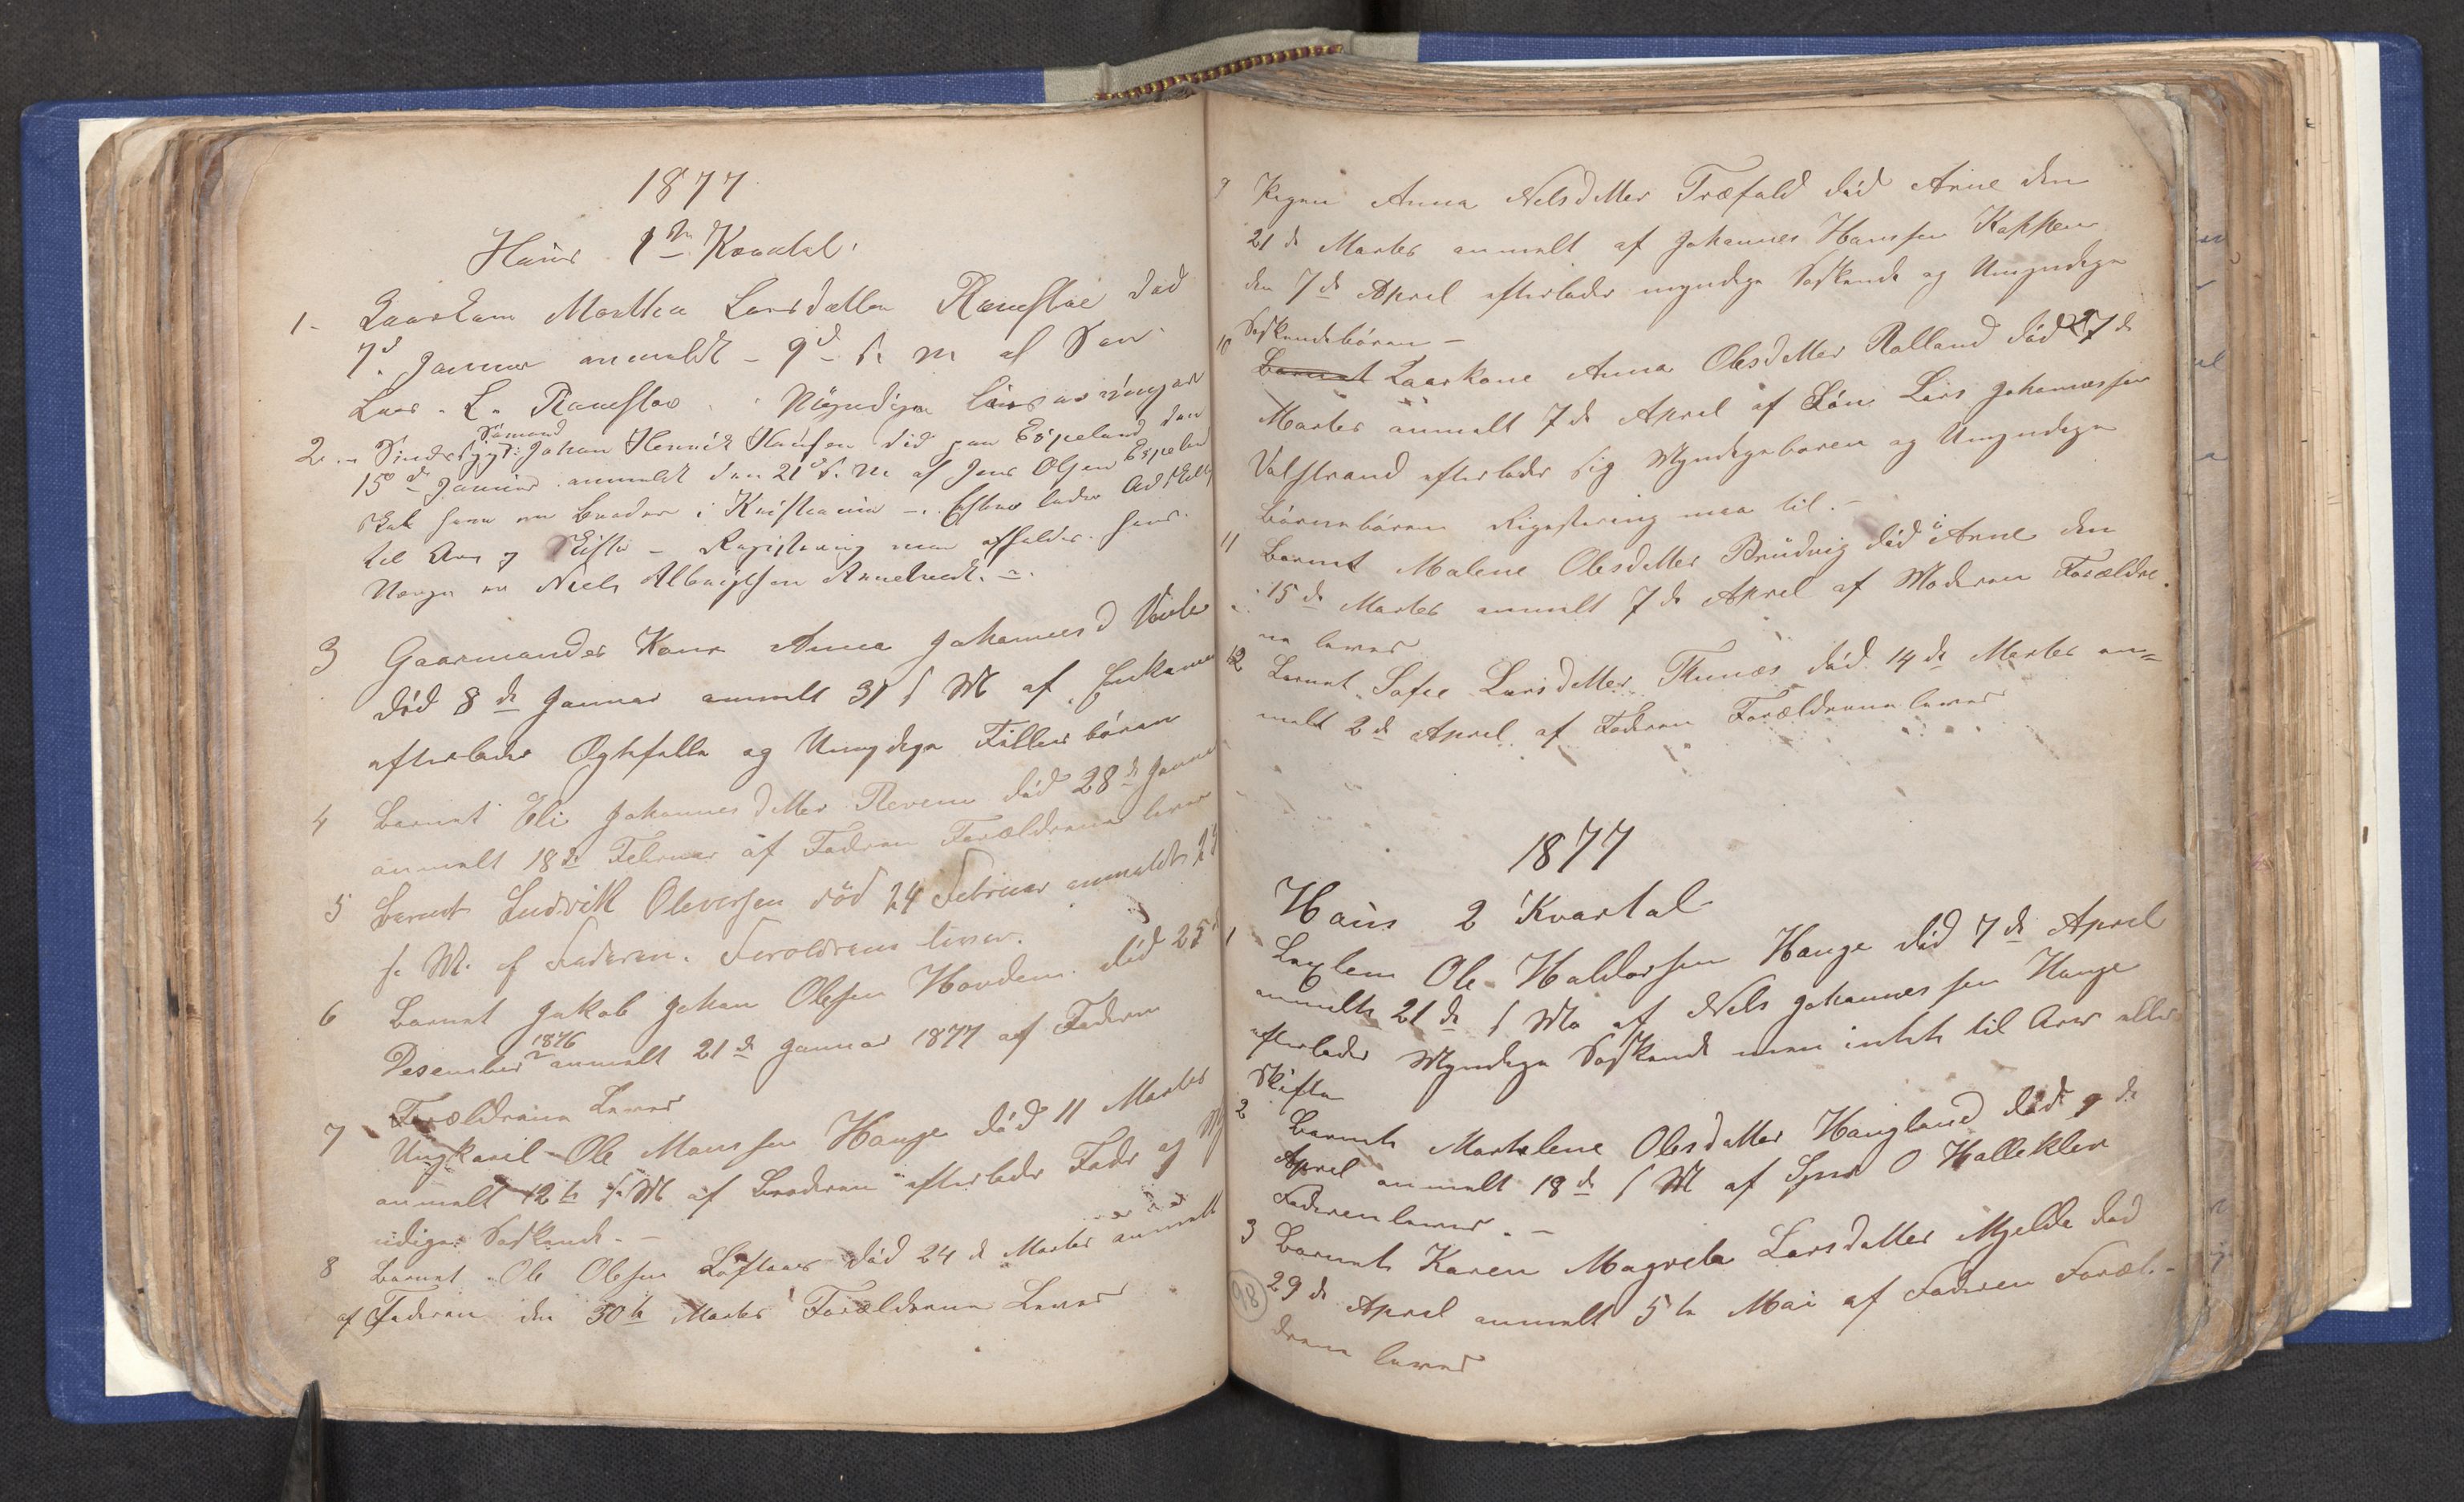 1877
Haus 1te Kvartal.
1- Kaarkone Martha Larsdatter Ramslae død
7d Januar anmeldt - 9d s. M af Søn
Lars. L. Ramslae Myndige
Sømand
2 - Sindssyg: Johan Henrik Hansen død paa Espeland den
15de Januar anmeldt den 21d d. M af Jens Olsen Espeland
skal have en Broder i Kristiania - Efterlader
til Arv og Skifte - Registrering maa afholdes. hans
Værge er Niels Albrigtsen Arnetveit. -
3 Gaarmandes Kone Anna Johannesd
død 8de Januar anmelt 31 s M af Enkeman
efterlader Ogtefelle og Umydige Fellesbøren
4 Barnet Eli Johannesdatter Revene død 28de Janua
anmelt 18de Februar af Faderen Forældrene lever
5 Barnet Ludvik Oleversen død 24 Februar anmeldt
s. M. af Faderen. Foroldrene lever.
6 Barnet Jakob Johan Olesen Hovden død 25
1876
Desember anmelt 21de Januar 1877 af Faderen
Forældrene Lever
7 Ungkaril Ole Monssen Hauge død 11 Martes
anmelt 12te s. M af Broderen efterlader Fader og My
ndige Søskende. -
8 Barnet Ole Olesen Løstaas død 24 d Martes anmelt
af Faderen den 30te Martes Forældrene Lever
9 Pigen Anna Nelsdatter Træfald død Arne den
21 de Martes anmelt af Johannes Hanssen Koppen
den 7de April efterlader myndige Søskende og Umyndige
Søskendebøren -
10 Barnet Kaarkone Anna Olesdatter Rolland død 27 de
Martes anmelt 7de April af Søn Lars Johannessen
Valstrand efterlader sig Myndigebøren og Umyndige
Børnebøren Rigestering maa til. -
11 Barnet Malene Olesdatter Brudvig død i Arne den
15de Martes anmelt 7de April af Moderen Forældre
ne lever
12 Barnet Sofie Larsdatter Tunæs død 14de Martes an=
melt 2de April af Faderen Forældrene lever
1877
Haus 2 Kvartal
1 Leglem Ole Haldorsen Hauge død 7de April
anmelt 21de s Ma af Nels Johannessen Hauge
efterlader Myndige Søskende men intet til Arv eller
Skifte
2 Barnet Martelene Olesdatter Haugland død 9 de
April anmelt 18de s M af O Halleklev
Faderen lever. -
3 Barnet Karen Magreta Larsdatter Mjelde død
29de April anmelt 5te Mai af Faderen Foræl-
drene lever
98